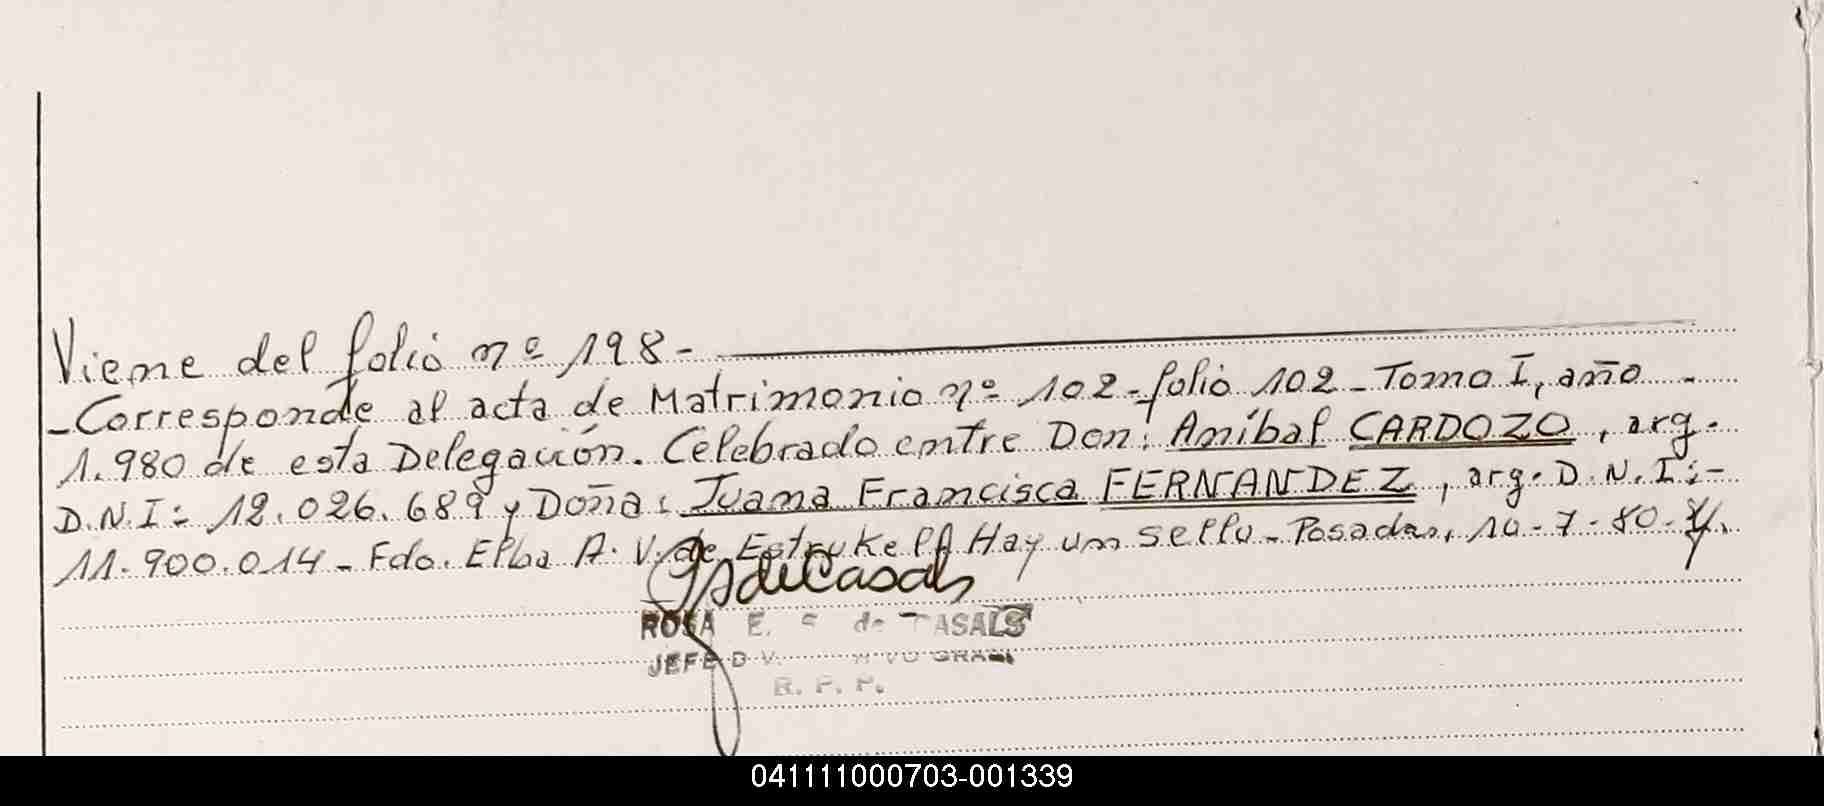 Viene del folio nº 198-
-Corresponde al acta de Matrimonio nº 102-folio 102-Tomo I, año -
1.980 de esta Delegación. Celebrado entre Don: Aníbal CARDOZO, arg.
D.N.I: 12.026.689 y Doña: Juana Francisca FERNANDEZ, arg. D.N.I:-
11.900.014- Fdo. Elba A. V. de Hay un sello- Posadas, 10-7-80-
ROSA E. S de CASALS
JEFE
R. P. P.
041111000703-001339